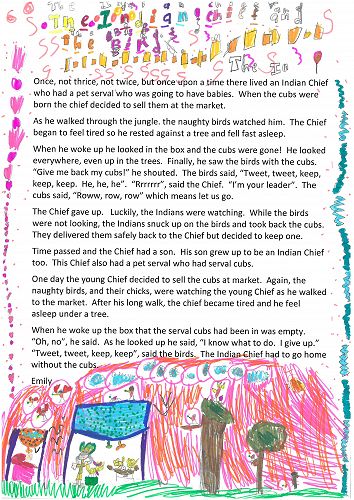 The Indian Chief and
the Birds
The In
Once, not thrice, not twice, but once upon a time there lived an Indian Chief
who had a pet serval who was going to have babies. When the cubs were
born the chief decided to sell them at the market.
As he walked through the jungle. the naughty birds watched him. The Chief
began to feel tired so he rested against a tree and fell fast asleep.
When he woke up he looked in the box and the cubs were gone! He looked
everywhere, even up in the trees. Finally, he saw the birds with the cubs.
“Give me back my cubs!” he shouted. The birds said, “Tweet, tweet, keep,
keep, keep. He, he, he”. “Rrrrrrr”, said the Chief. “I’m your leader”. The
cubs said, “Roww, row, row” which means let us go.
The Chief gave up. Luckily, the Indians were watching. While the birds
were not looking, the Indians snuck up on the birds and took back the cubs.
They delivered them safely back to the Chief but decided to keep one.
Time passed and the Chief had a son. His son grew up to be an Indian Chief
too. This Chief also had a pet serval who had serval cubs.
One day the young Chief decided to sell the cubs at market. Again, the
naughty birds, and their chicks, were watching the young Chief as he walked
to the market. After his long walk, the chief became tired and he feel
asleep under a tree.
When he woke up the box that the serval cubs had been in was empty.
“Oh, no”, he said. As he looked up he said, “I know what to do. I give up.”
“Tweet, tweet, keep, keep”, said the birds. The Indian Chief had to go home
without the cubs.
Emily